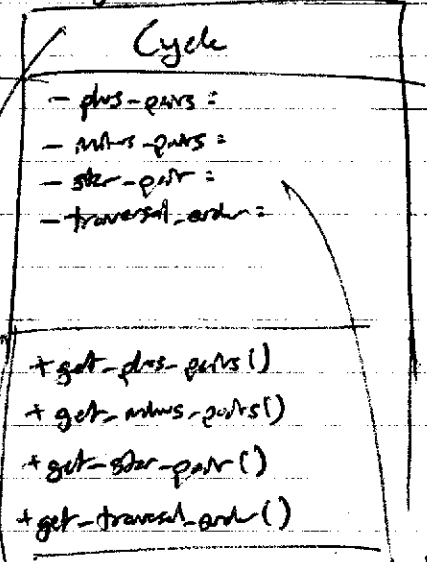 Cycle
- plus-pairs :
- minus-pairs :
- star-pair :
- traversal-order :
+ get-plus-pairs()
+ get-minus-pairs()
+ get-star-pair()
+ get-traversal-order()